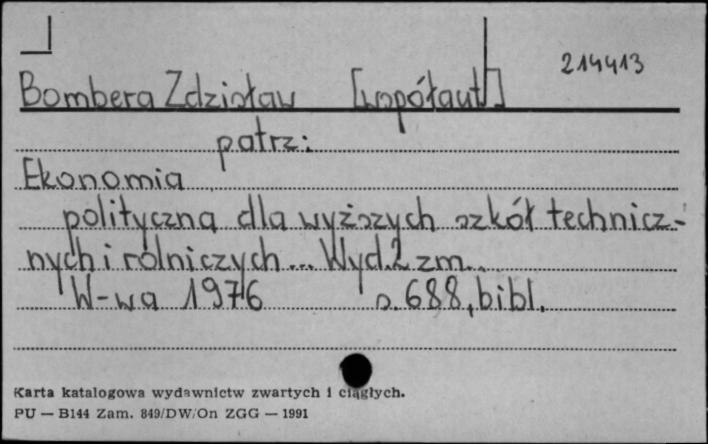 214413
Bombera Zdzisław [współaut]
patrz:
Ekonomia
polityczna dla wyższych szkół technicz-
nych i rolniczych... Wyd. 2 zm.
W-wa 1976 s. 688, bibl.
Karta katalogowa wydawnictw zwartych i ciągłych.
PU — B144 Zam. 849/DW/On ZGG — 1991